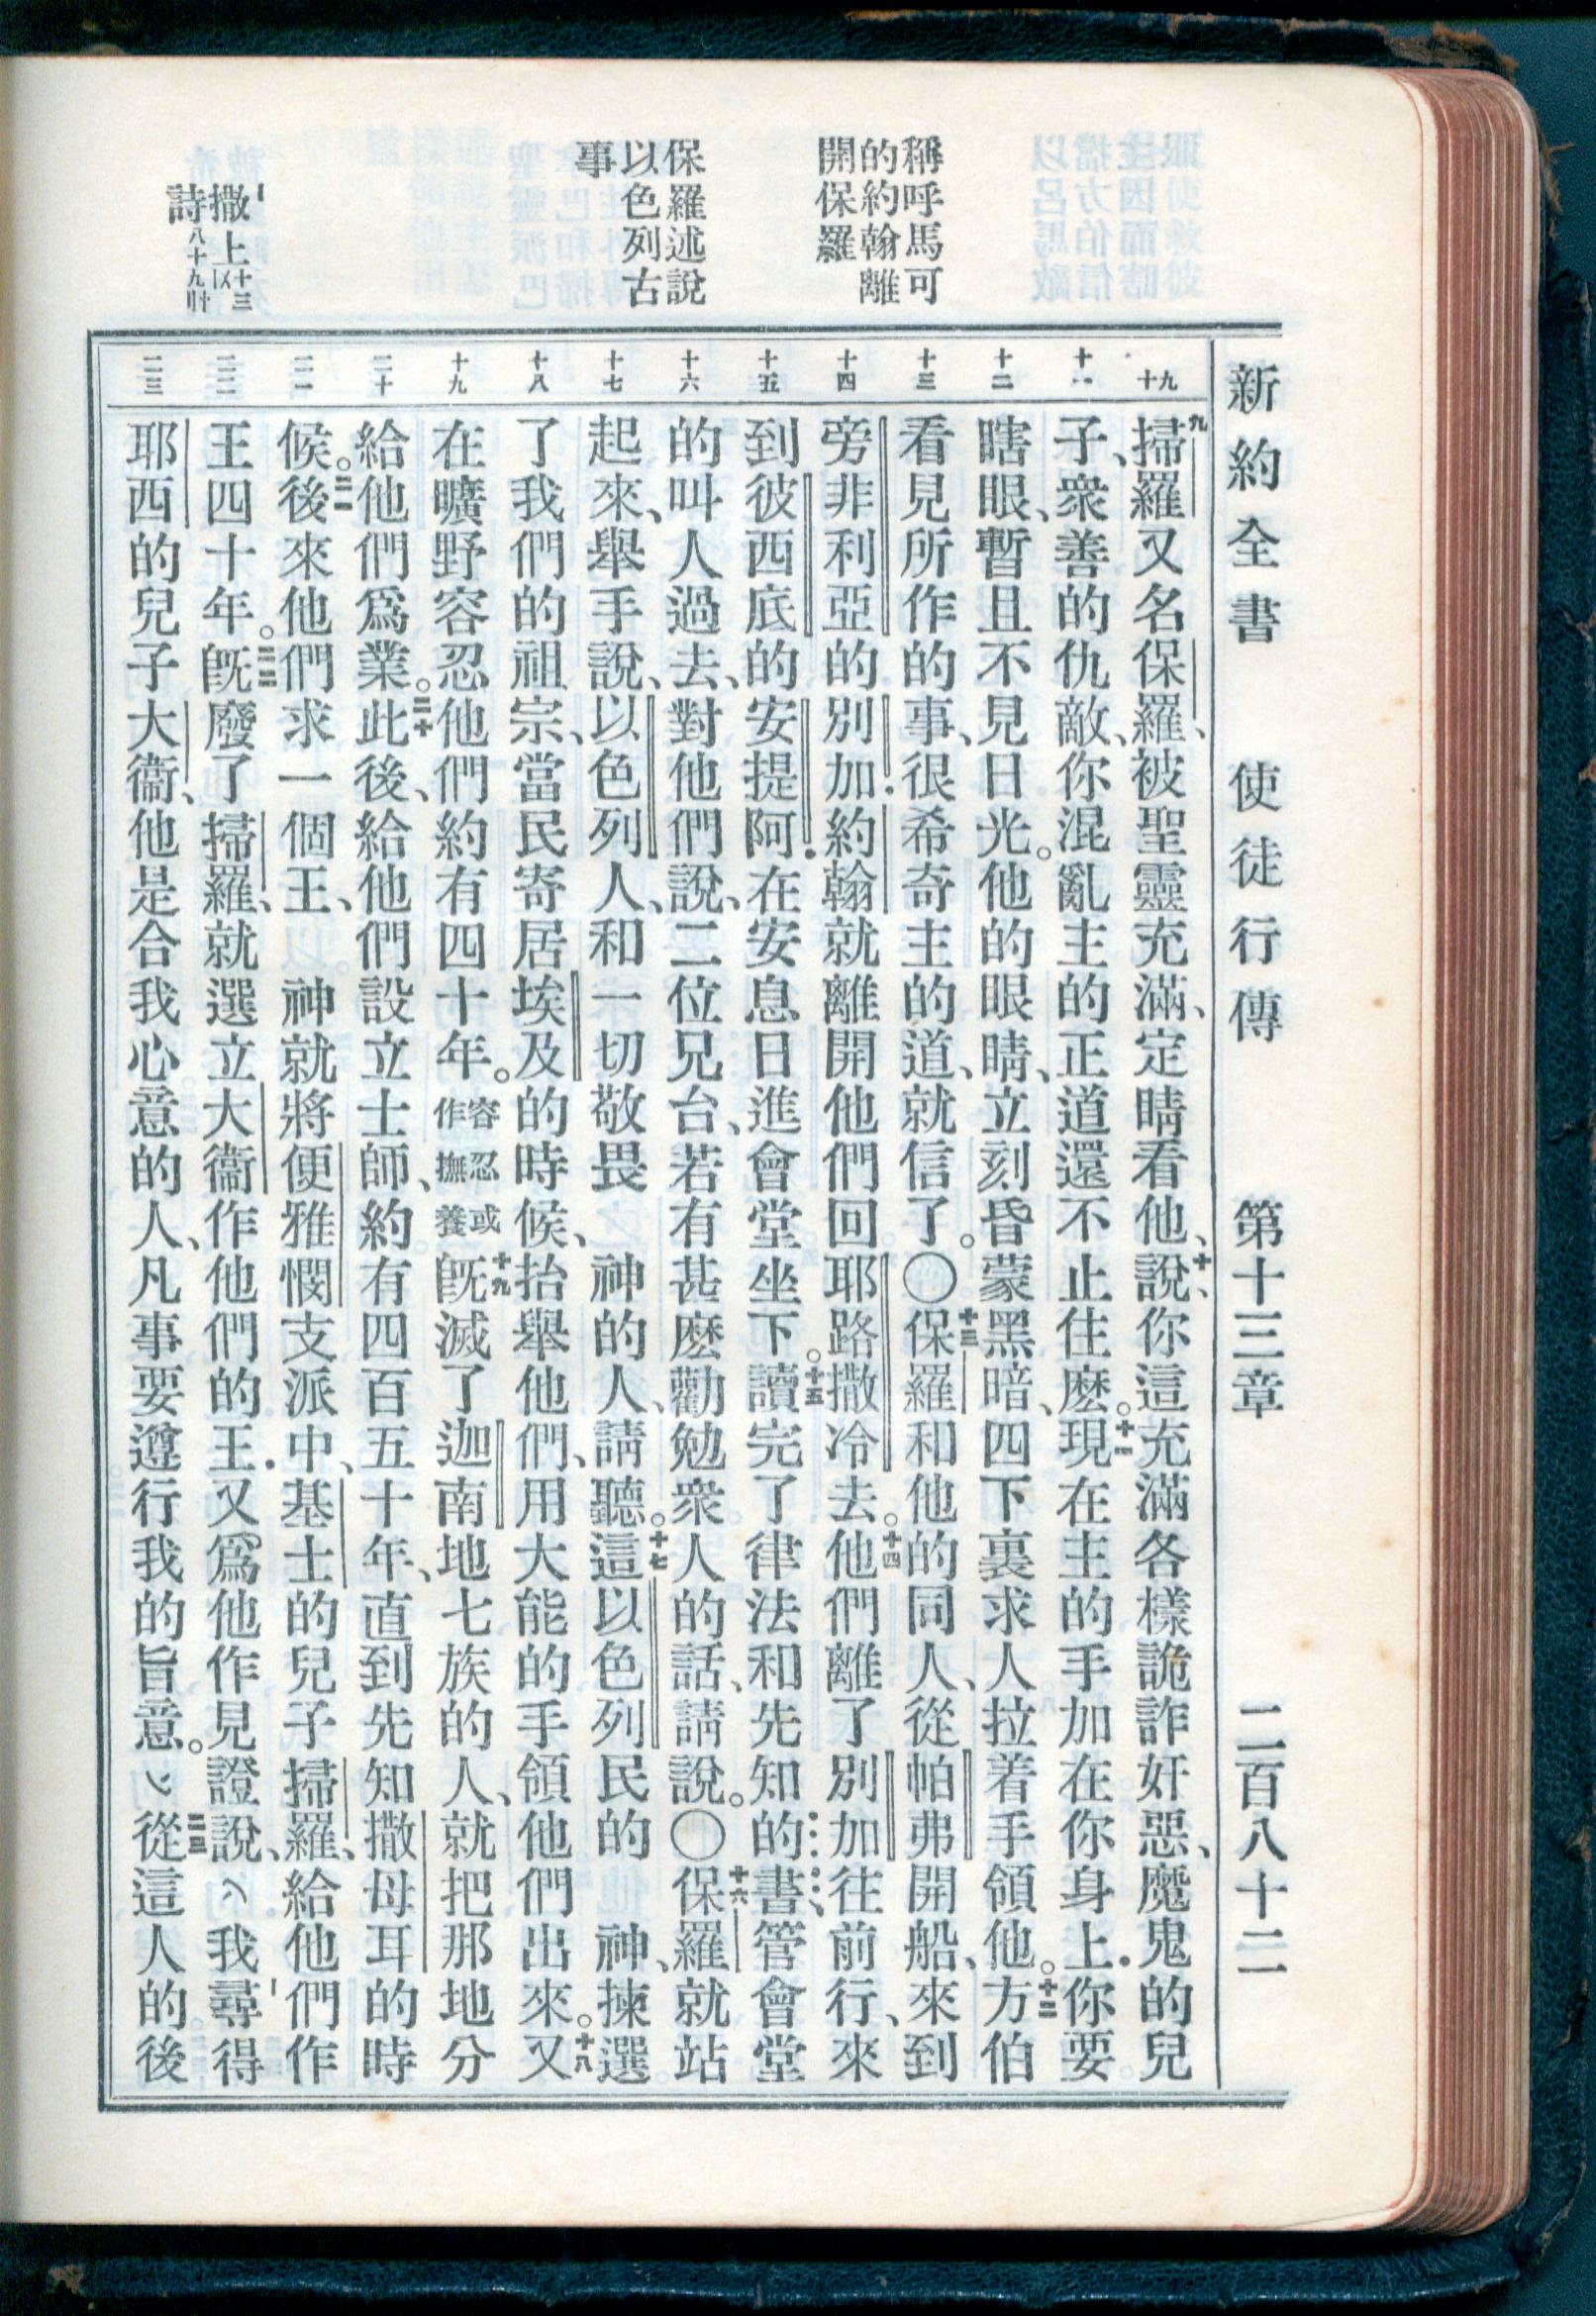 新約全書 使徒行傳 第十三章 二百八十二
稱呼馬可
的約翰離
開保羅
保羅述說
以色列古
事
撒上十三
詩八十九
十九
十一
十二
十三
十四
十五
十六
十七
十八
十九
二十
二一
二二
二三
九掃羅又名保羅、被聖靈充滿、定睛看他、十說、你這充滿各樣詭詐奸惡、魔鬼的兒
子、衆善的仇敵、你混亂主的正道還不止住麽。十一現在主的手加在你身上.你要
瞎眼、暫且不見日光。他的眼睛、立刻昏蒙黑暗、四下裏求人拉着手領他。十二方伯
看見所作的事、很希奇主的道、就信了。○十三保羅和他的同人、從帕弗開船、來到
旁非利亞的別加.約翰就離開他們回耶路撒冷去。十四他們離了別加往前行、來
到彼西底的安提阿.在安息日進會堂坐下。十五讀完了律法和先知的書、管會堂
的叫人過去、對他們說、二位兄台、若有甚麽勸勉衆人的話、請說。○十六保羅就站
起來、舉手說、以色列人、和一切敬畏 神的人、請聽。十七這以色列民的 神、揀選
了我們的祖宗、當民寄居埃及的時候、抬舉他們、用大能的手領他們出來。十八又
在曠野容忍他們約有四十年。容忍或作撫養十九旣滅了迦南地七族的人、就把那地分
給他們爲業。二十此後、給他們設立士師、約有四百五十年、直到先知撒母耳的時
候。二一後來他們求一個王、 神就將便雅憫支派中、基士的兒子掃羅、給他們作
王四十年。二二旣廢了掃羅、就選立大衞作他們的王.又爲他作見證說、我尋得
耶西的兒子大衞、他是合我心意的人、凡事要遵行我的旨意。二三從這人的後